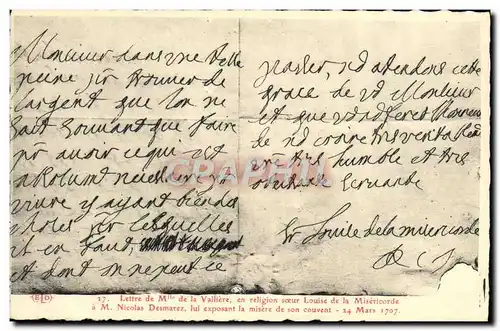 Monsieur dans une telle
peine pr trouver de
largent que lon ne
sait souvant que faire
pr avoir ce qui est
absolumt nécessaire pr
vivre y ayant bien des
choses pr lesquelles
il en faut
et dont on ne peut ce
passer, nd atendons cette
grace de vd Monsieur
et que vd
de nd croire
une tres humble et tres
obeissante servante
Sr Louise de la misericorde
R C I
CPARAMA
ELD
17. Lettre de Mlle de la Vallière, en religion sœur Louise de la Miséricorde
à M. Nicolas Desmarez, lui exposant la misère de son couvent - 24 Mars 1707.